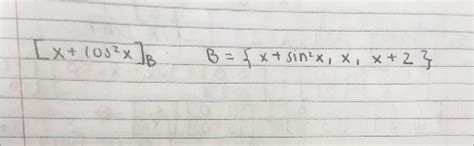 [x + cos²x]_B    B = { x + sin²x, x, x + 2 }